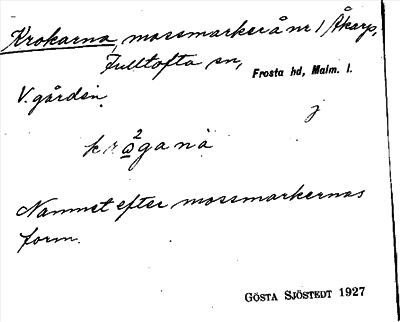 Krokarna, mossmarker å nr 1 Åkarp,
Fulltofta sn, Frosta hd, Malm. l.
V. gårdsin.
kr ω̲²ganä
Namnet efter mossmarkernas
form.
GÖSTA SJÖSTEDT 1927